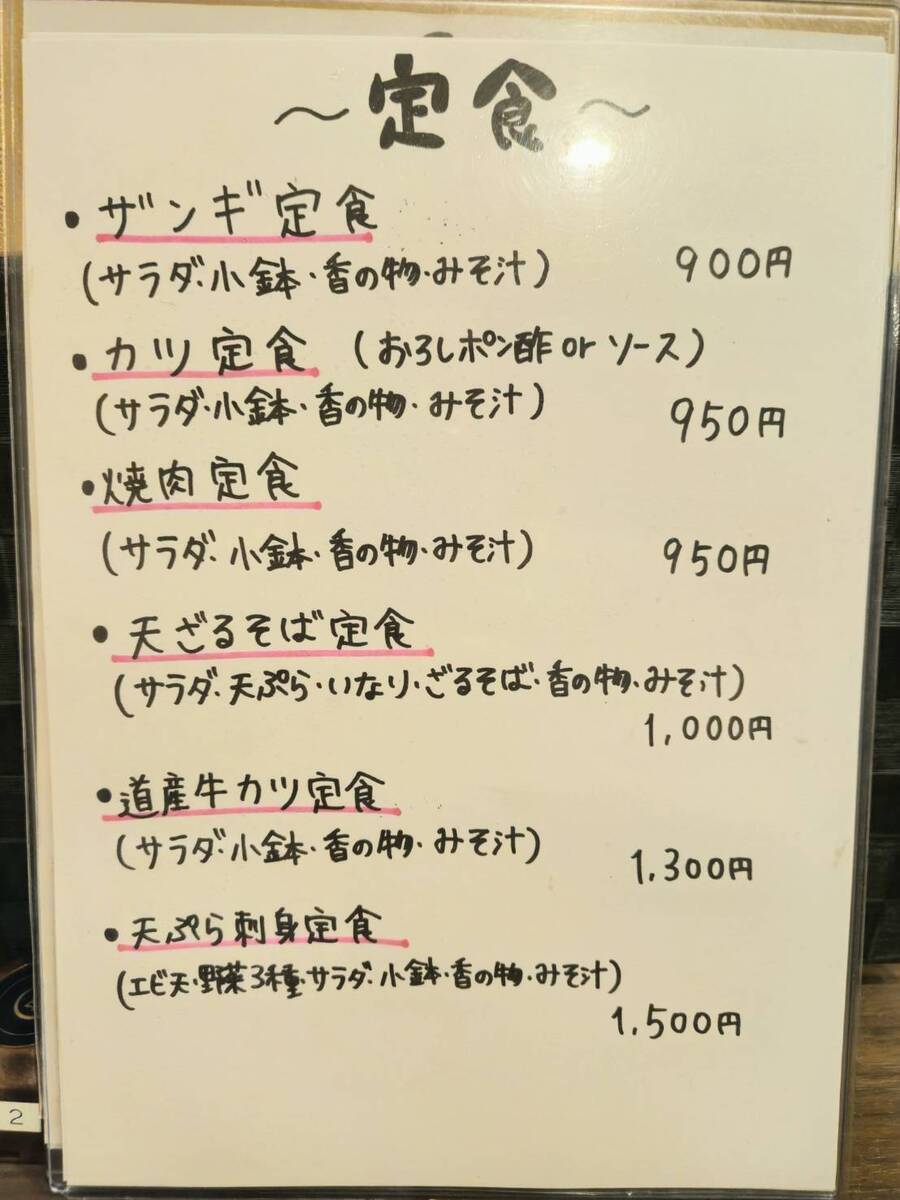 ～定食～
・ザンギ定食
(サラダ・小鉢・香の物・みそ汁) 900円
・カツ定食 (おろしポン酢or ソース)
(サラダ・小鉢・香の物・みそ汁) 950円
・焼肉定食
(サラダ・小鉢・香の物・みそ汁) 950円
・天ざるそば定食
(サラダ・天ぷら・いなり・ざるそば・香の物・みそ汁)
1,000円
・道産牛カツ定食
(サラダ・小鉢・香の物・みそ汁) 1,300円
・天ぷら刺身定食
(エビ天・野菜3種・サラダ・小鉢・香の物・みそ汁)
1,500円
2